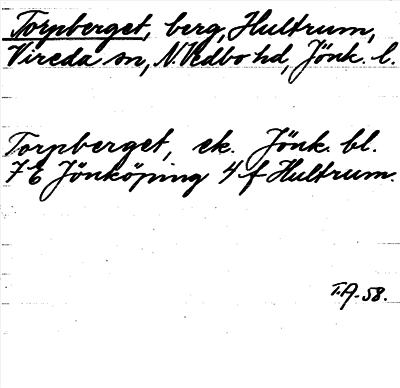 Torpberget, berg, Hultrum,
Vireda sn, N. Vedbo hd, Jönk. l.
Torpberget, ek. Jönk. bl.
7E Jönköping 4 f Hultrum.
T.A. 58.